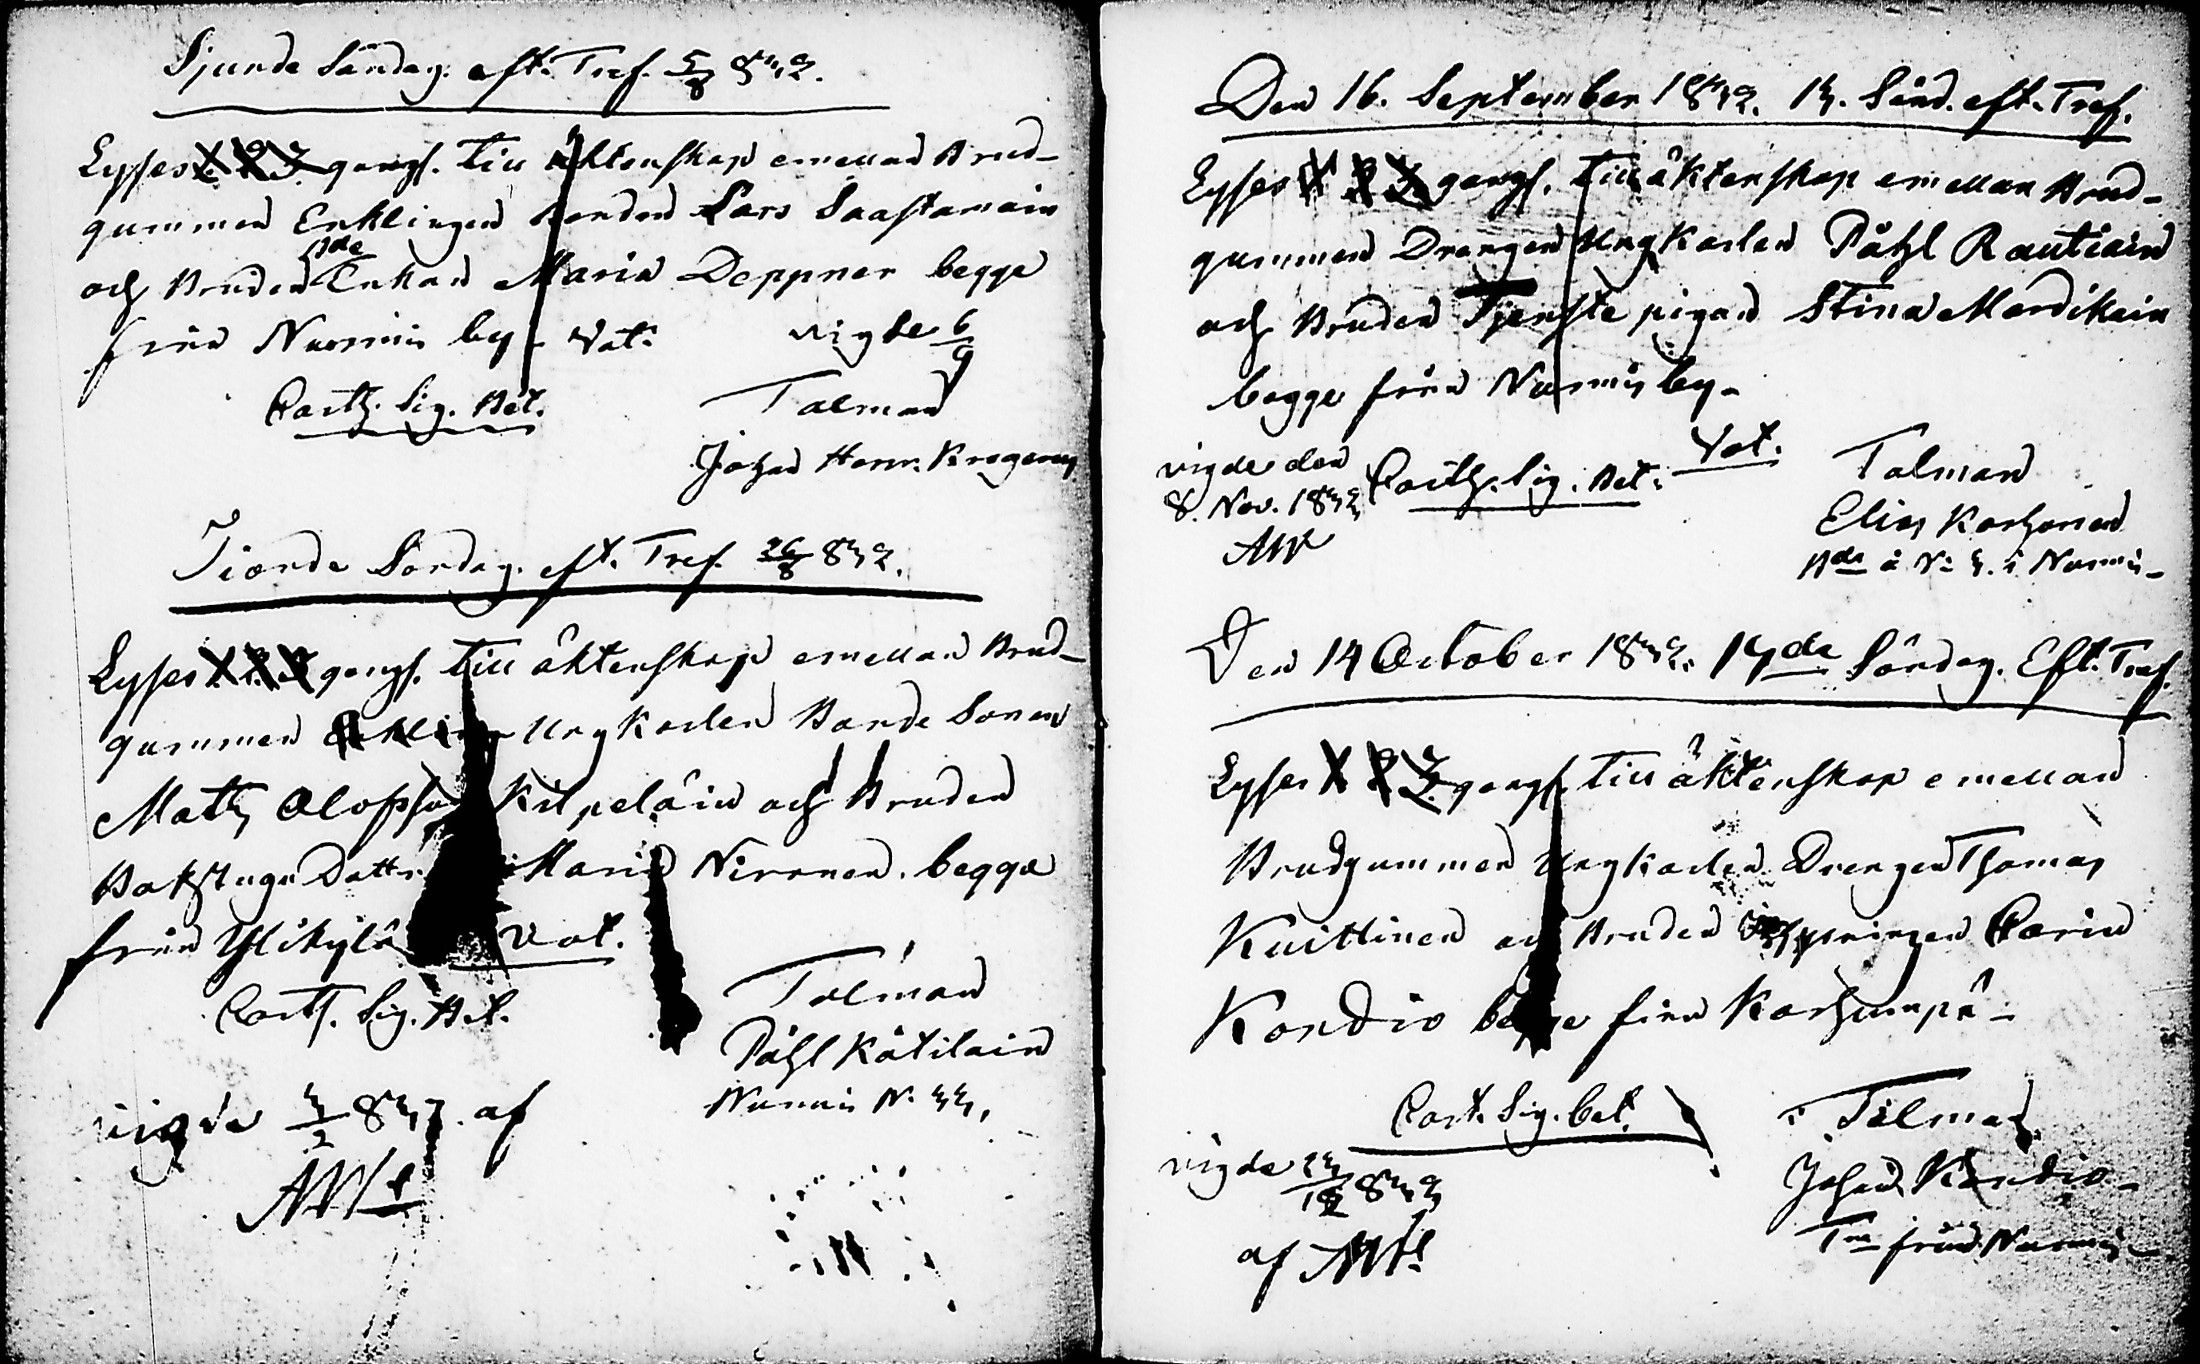 Sjunde Söndag. eft. Tref. 5/8 832.
Lyses 1. 2. 3. gangs. till äktenskap emellan Brud-
gummen Enklingen Bonden Lars Saastamoin
och Bruden Bde Enkan Maria Deppner begge
från Nurmis by - Vat. vigde 6/9
Carth. Sig. Bet. Talman
Johan Henr. Krogerus
Tionde Söndag. eft. Tref. 26/8 832.
Lyses 1. 2. 3 gangs. till äktenskap emellan Brud-
gummen Enkling Ungkarlen Bonde Sonen
Mats Olofsson Kilpeläin och Bruden
Bakstugu Dottr. Maria Nironen. begge
från Ylikylä Vat.
Cart. Sig. Bet. Talman
Påhl Kätilain
Nurmis N: 33,
vigde 3/2 833. af
Den 16. September 1832. 13. Sönd. eft. Tref.
Lyses 1 2 3 gangs. till äktenskap emellan Brud-
gummen Drengen Ungkarlen Påhl Rautiain
och Bruden Tjenste pigan Stina Mardikain
begge från Nurmis by -
Vat.
vigde den Carth. Sig. Bet. Talman
8. Nov. 1832 Elias Korhonen
Bde å N: 3. i Nurmis -
Den 14 October 1832. 17de Söndag. Eft. Tref.
Lyses 1 2 3. gangs. till äktenskap emellan
Brudgummen Ungkarlen Drengen Thomas
Kuittinen och Bruden Carin
Kondio begge från Karhunpä -
Cart. Sig. bet. Talman
vigde 23/12 832 Johan Kondio -
af från Nurmis -